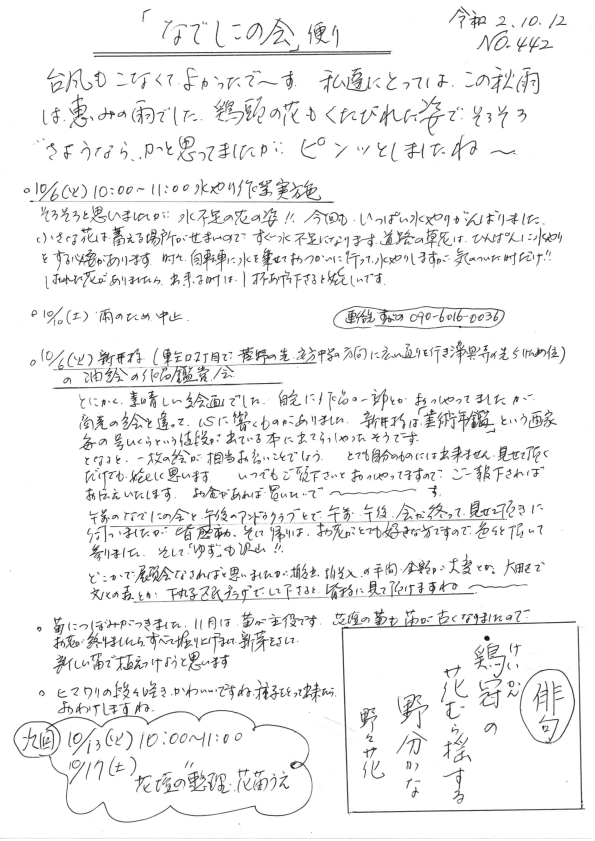 「なでしこの会」便り
令和 2.10.12
NO.442
台風もこなくてよかったで〜す 私達にとっては、この秋雨
は恵みの雨でした。鶏頭の花もくたびれた姿で そろそろ
さようなら、かっと思ってましたが ピンッとしましたね〜
○10/6(火) 10:00〜11:00 水やり作業実施
そろそろと思いましたが 水不足の花の姿!! 今回も、いっぱい水やりがんばりました。
小さな花は蓄える場所がせまいので すぐ水不足になります。道路の草花は、ひんぱんに水やり
をする必要があります 時々、自転車に水を乗せて行って、水やりしますが 気のついた時だけ!!
しおれた花がありましたら、出来る時は、1杯あげて下さると嬉しいです。
○10/10(土) 雨のため中止
連絡先 090-6016-0036
○10/6(火) 新井様
の油絵の作品鑑賞会
とにかく、素晴しい絵画でした。自宅に作品の一部とか おっしゃってましたが
絵と違って、心に響くものがありました。新井様は「美術年鑑」という画家
毎の号いくらという値段が出ている本に出てらっしゃったそうです。
となると、一枚の絵が相当お高いことでしょう とても自分のものには出来ません。見せて頂く
だけでも嬉しく思います いつでもご覧下さいとおっしゃってますので ご一報下されば
お伝えいたします。お金があれば買いたいで〜〜〜す。
午前のなでしこの会と午後のアンドウクラブとで、午前・午後、会が終って、見せて頂きに
行っいましたが 皆感動。そして帰りは、お花がとても好きな方ですので、色々と頂いて
参りました。そして“ゆず”も沢山!!
どこかで展覧会なされればと思いましたが 搬出、搬入、の手間・金額が大変とか、大田区で
文化の森とか 下丸子区民プラザでして下さると 皆様に見て頂けますね〜
○ 菊につぼみがつきました。11月は菊が主役です。花壇の菊も苗が古くなりましたので
お花が終りましたら、すべて掘り上げまして 新芽をさして
新しい苗で植えつけようと思います
○ ヒマワリの段々咲き、かわいいですね 種子をとって出来たら、
おわけしますね。
次回
10/13(火) 10:00〜11:00
10/17(土) 〃
花壇の整理・花苗うえ
俳句
鶏冠の
けいかん
花むら揺する
野分かな
野々花